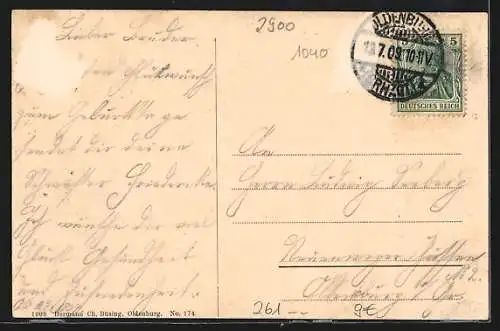 2900
1040
OLDENBURG
7.09.10-11V.
5 5
DEUTSCHES REICH
Lieber Bruder
den Glückwunsch
zum Geburtstage
sendet dir deine
Schwester Friedericke.
Ich wünsche dir viel
Glück Gesundheit
und Zufriedenheit.
An
Herrn Ludwig
Oldenburg i/Gr.
1909 Hermann Ch. Büsing, Oldenburg. No. 174
261
9€